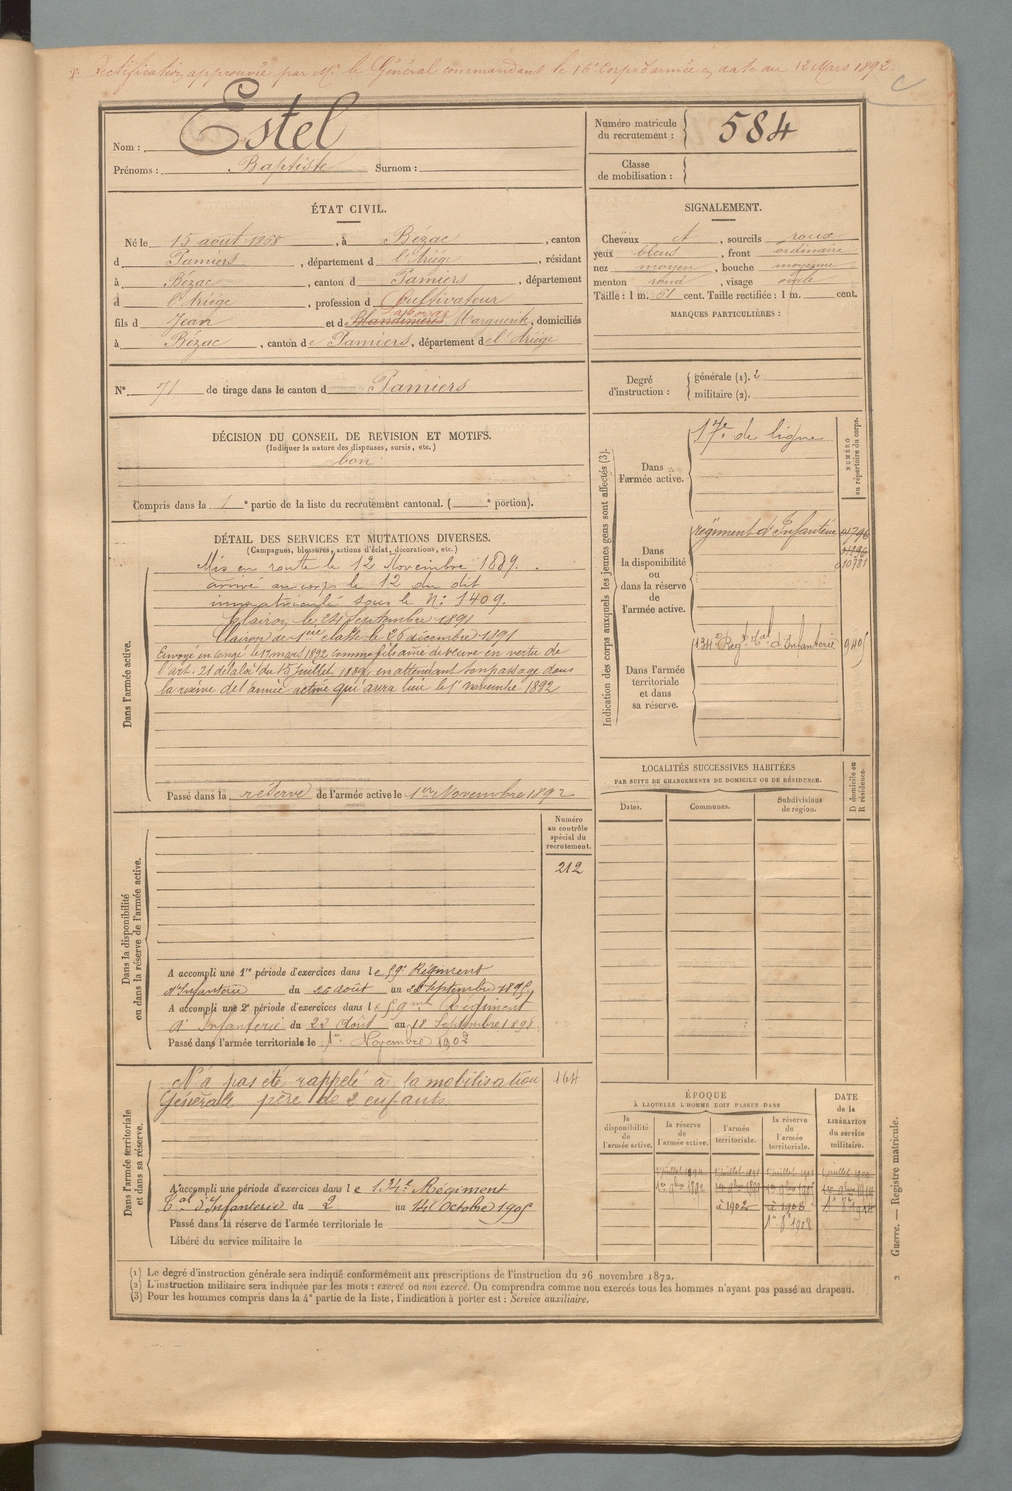 Rectification approuvée par Mr le Général commandant le 16e Corps d'armée en date du 12 Mars 1892.
C
Nom : Estel
Prénoms : Baptiste Surnom :
Numéro matricule du recrutement : 584
Classe de mobilisation :
ÉTAT CIVIL.
Né le 15 août 1868, à Bézac, canton
d Pamiers, département d l'Ariège, résidant
à Bézac, canton d Pamiers, département
d l'Ariège, profession d Cultivateur
fils d Jean et de Blandinières Marguerite, domiciliés
à Bézac, canton de Pamiers, département de l'Ariège
SIGNALEMENT.
Cheveux et, sourcils roux
yeux bleus, front ordinaire
nez moyen, bouche moyenne
menton rond, visage ovale
Taille : 1 m. 61 cent. Taille rectifiée : 1 m. cent.
MARQUES PARTICULIÈRES :
N° 71 de tirage dans le canton d Pamiers
Degré d'instruction : générale (1). 2
militaire (2).
DÉCISION DU CONSEIL DE REVISION ET MOTIFS.
(Indiquer la nature des dispenses, sursis, etc.)
bon
Compris dans la 1e partie de la liste du recrutement cantonal. ( e portion).
DÉTAIL DES SERVICES ET MUTATIONS DIVERSES.
(Campagnes, blessures, actions d'éclat, décorations, etc.)
Dans l'armée active.
Mis en route le 12 Novembre 1889.
arrivé au corps le 12 du dit
immatriculé sous le N° 1409.
Clairon le 24 Septembre 1891
Clairon de 1ère classe le 26 décembre 1891
Envoyé en congé le 17 mars 1892 comme fils aîné de veuve en vertu de
l'art. 21 de la loi du 15 juillet 1889, en attendant son passage dans
la réserve de l'armée active qui aura lieu le 1er novembre 1892
Passé dans la réserve de l'armée active le 1er Novembre 1892
Indication des corps auxquels les jeunes gens sont affectés (3).
NUMÉRO au répertoire du corps.
Dans l'armée active.
17e de ligne
Dans la disponibilité ou dans la réserve de l'armée active.
régiment d'Infanterie
010781
Dans l'armée territoriale et dans sa réserve.
134e Regt Tal d'Infanterie
LOCALITÉS SUCCESSIVES HABITÉES
PAR SUITE DE CHANGEMENTS DE DOMICILE OU DE RÉSIDENCE.
D domicile ou R résidence.
Dates. Communes. Subdivisions de région.
Dans la disponibilité ou dans la réserve de l'armée active.
Numéro au contrôle spécial du recrutement.
212
A accompli une 1re période d'exercices dans le 59e Régiment
d'Infanterie du 26 août au Septembre 1895
A accompli une 2e période d'exercices dans le 59me Régiment
d'Infanterie du 22 Août au 18 Septembre 1898
Passé dans l'armée territoriale le 1er Novembre 1902
Dans l'armée territoriale et dans sa réserve.
164
N'a pas été rappelé à la mobilisation
Générale père de 2 enfants
A accompli une période d'exercices dans le 134e Régiment
Tal d'Infanterie du 2 au 14 Octobre 1905
Passé dans la réserve de l'armée territoriale le
Libéré du service militaire le
ÉPOQUE
À LAQUELLE L'HOMME DOIT PASSER DANS
la disponibilité de l'armée active. la réserve de l'armée active. l'armée territoriale. la réserve de l'armée territoriale.
DATE de la LIBÉRATION du service militaire.
1er 9bre 1892
à 1902
à 1908
(1) Le degré d'instruction générale sera indiqué conformément aux prescriptions de l'instruction du 26 novembre 1872.
(2) L'instruction militaire sera indiquée par les mots : exercé ou non exercé. On comprendra comme non exercés tous les hommes n'ayant pas passé au drapeau.
(3) Pour les hommes compris dans la 4e partie de la liste, l'indication à porter est : Service auxiliaire.
Guerre. — Registre matricule.
2